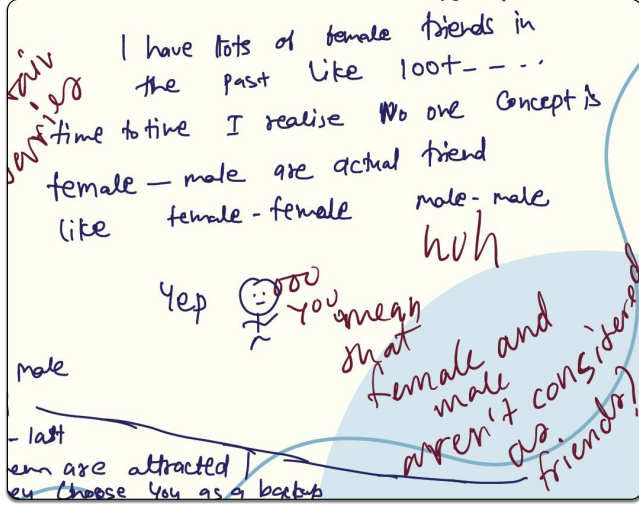 I have lots of female friends in
the past like 100+ - - ...
time to time I realise No one Concept is
female - male are actual friend
like female - female male - male
huh
Yep
you mean
that
female and
male
aren't considered
as
friends?
male
- last
are attracted
choose you as a backup